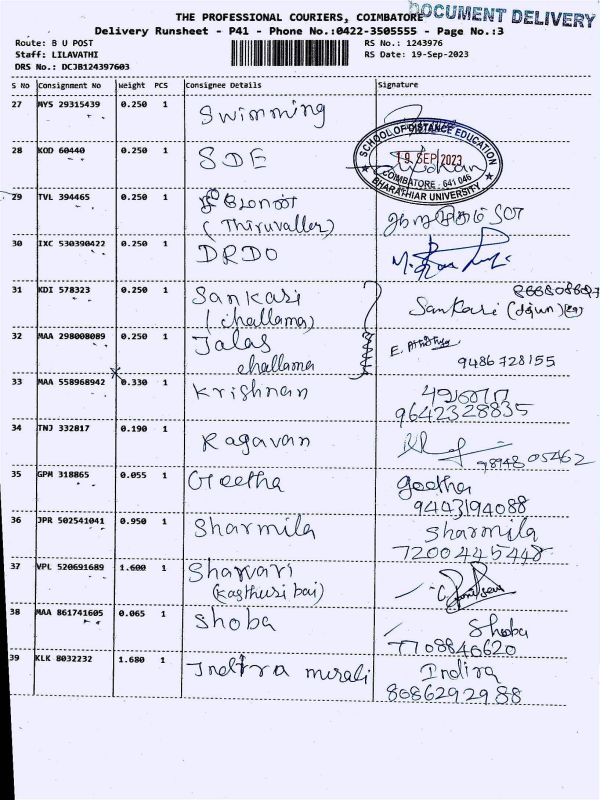 THE PROFESSIONAL COURIERS, COIMBATORE
DOCUMENT DELIVERY
Delivery Runsheet - P41 - Phone No.:0422-3505555 - Page No.:3
Route: B U POST
RS No.: 1243976
Staff: LILAVATHI
RS Date: 19-Sep-2023
DRS No.: DCJB124397603
S No Consignment No Weight PCS Consignee Details Signature
27 MYS 29315439 0.250 1 Swimming
28 KOD 60440 0.250 1 SDE
SCHOOL OF DISTANCE EDUCATION
19 SEP 2023
COIMBATORE - 641 046
BHARATHIAR UNIVERSITY
29 TVL 394465 0.250 1
(Thiruvaller)
30 IXC 530390422 0.250 1 DRDO
31 KDI 578323 0.250 1 Sankari Sankari
(challama)
32 MAA 298008089 0.250 1 Jalas
challama 9486728155
33 MAA 558968942 0.330 1 Krishnan
9642328835
34 TNJ 332817 0.190 1 Ragavan
9894805462
35 GPM 318865 0.055 1 Geetha geetha
9443194088
36 JPR 502541041 0.950 1 Sharmila Sharmila
7200445448
37 VPL 520691689 1.600 1 Sharvari
(Kasthuri bai)
38 MAA 861741605 0.065 1 Shoba Shoba
7708840620
39 KLK 8032232 1.680 1 Indira murali Indira
8086292988